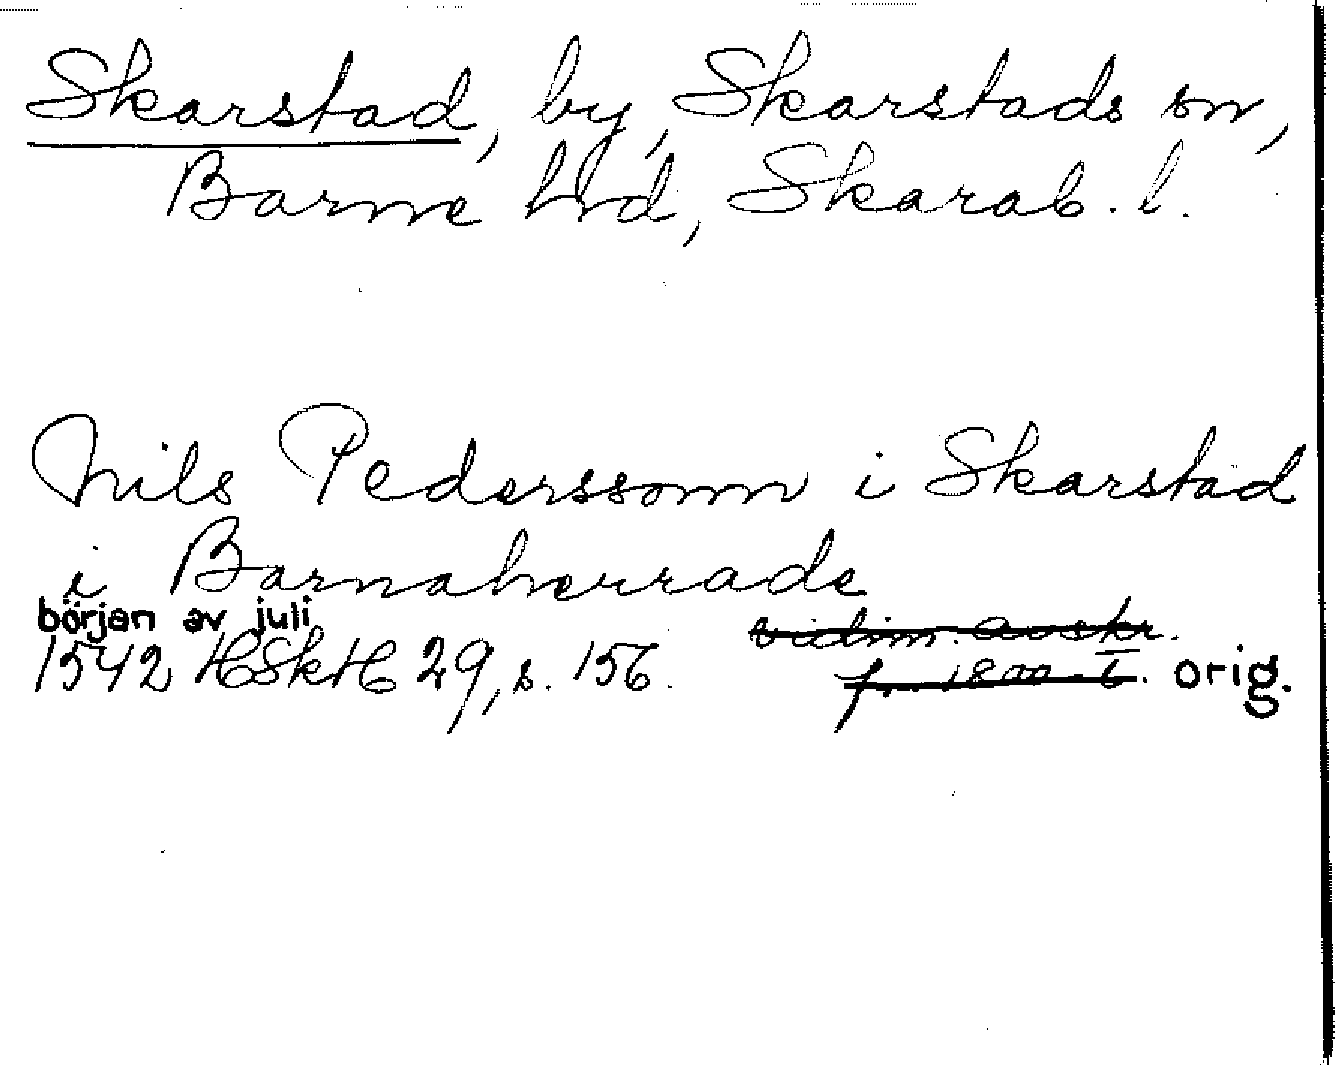 Skarstad, by, Skarstads sn,
Barne hrd, Skarab. l.
Nils Pederssonn i Skarstad
i Barnaherrade
början av juli
1542 HSkH 29, s. 156. vidim. avskr.
f. 1800-t. orig.